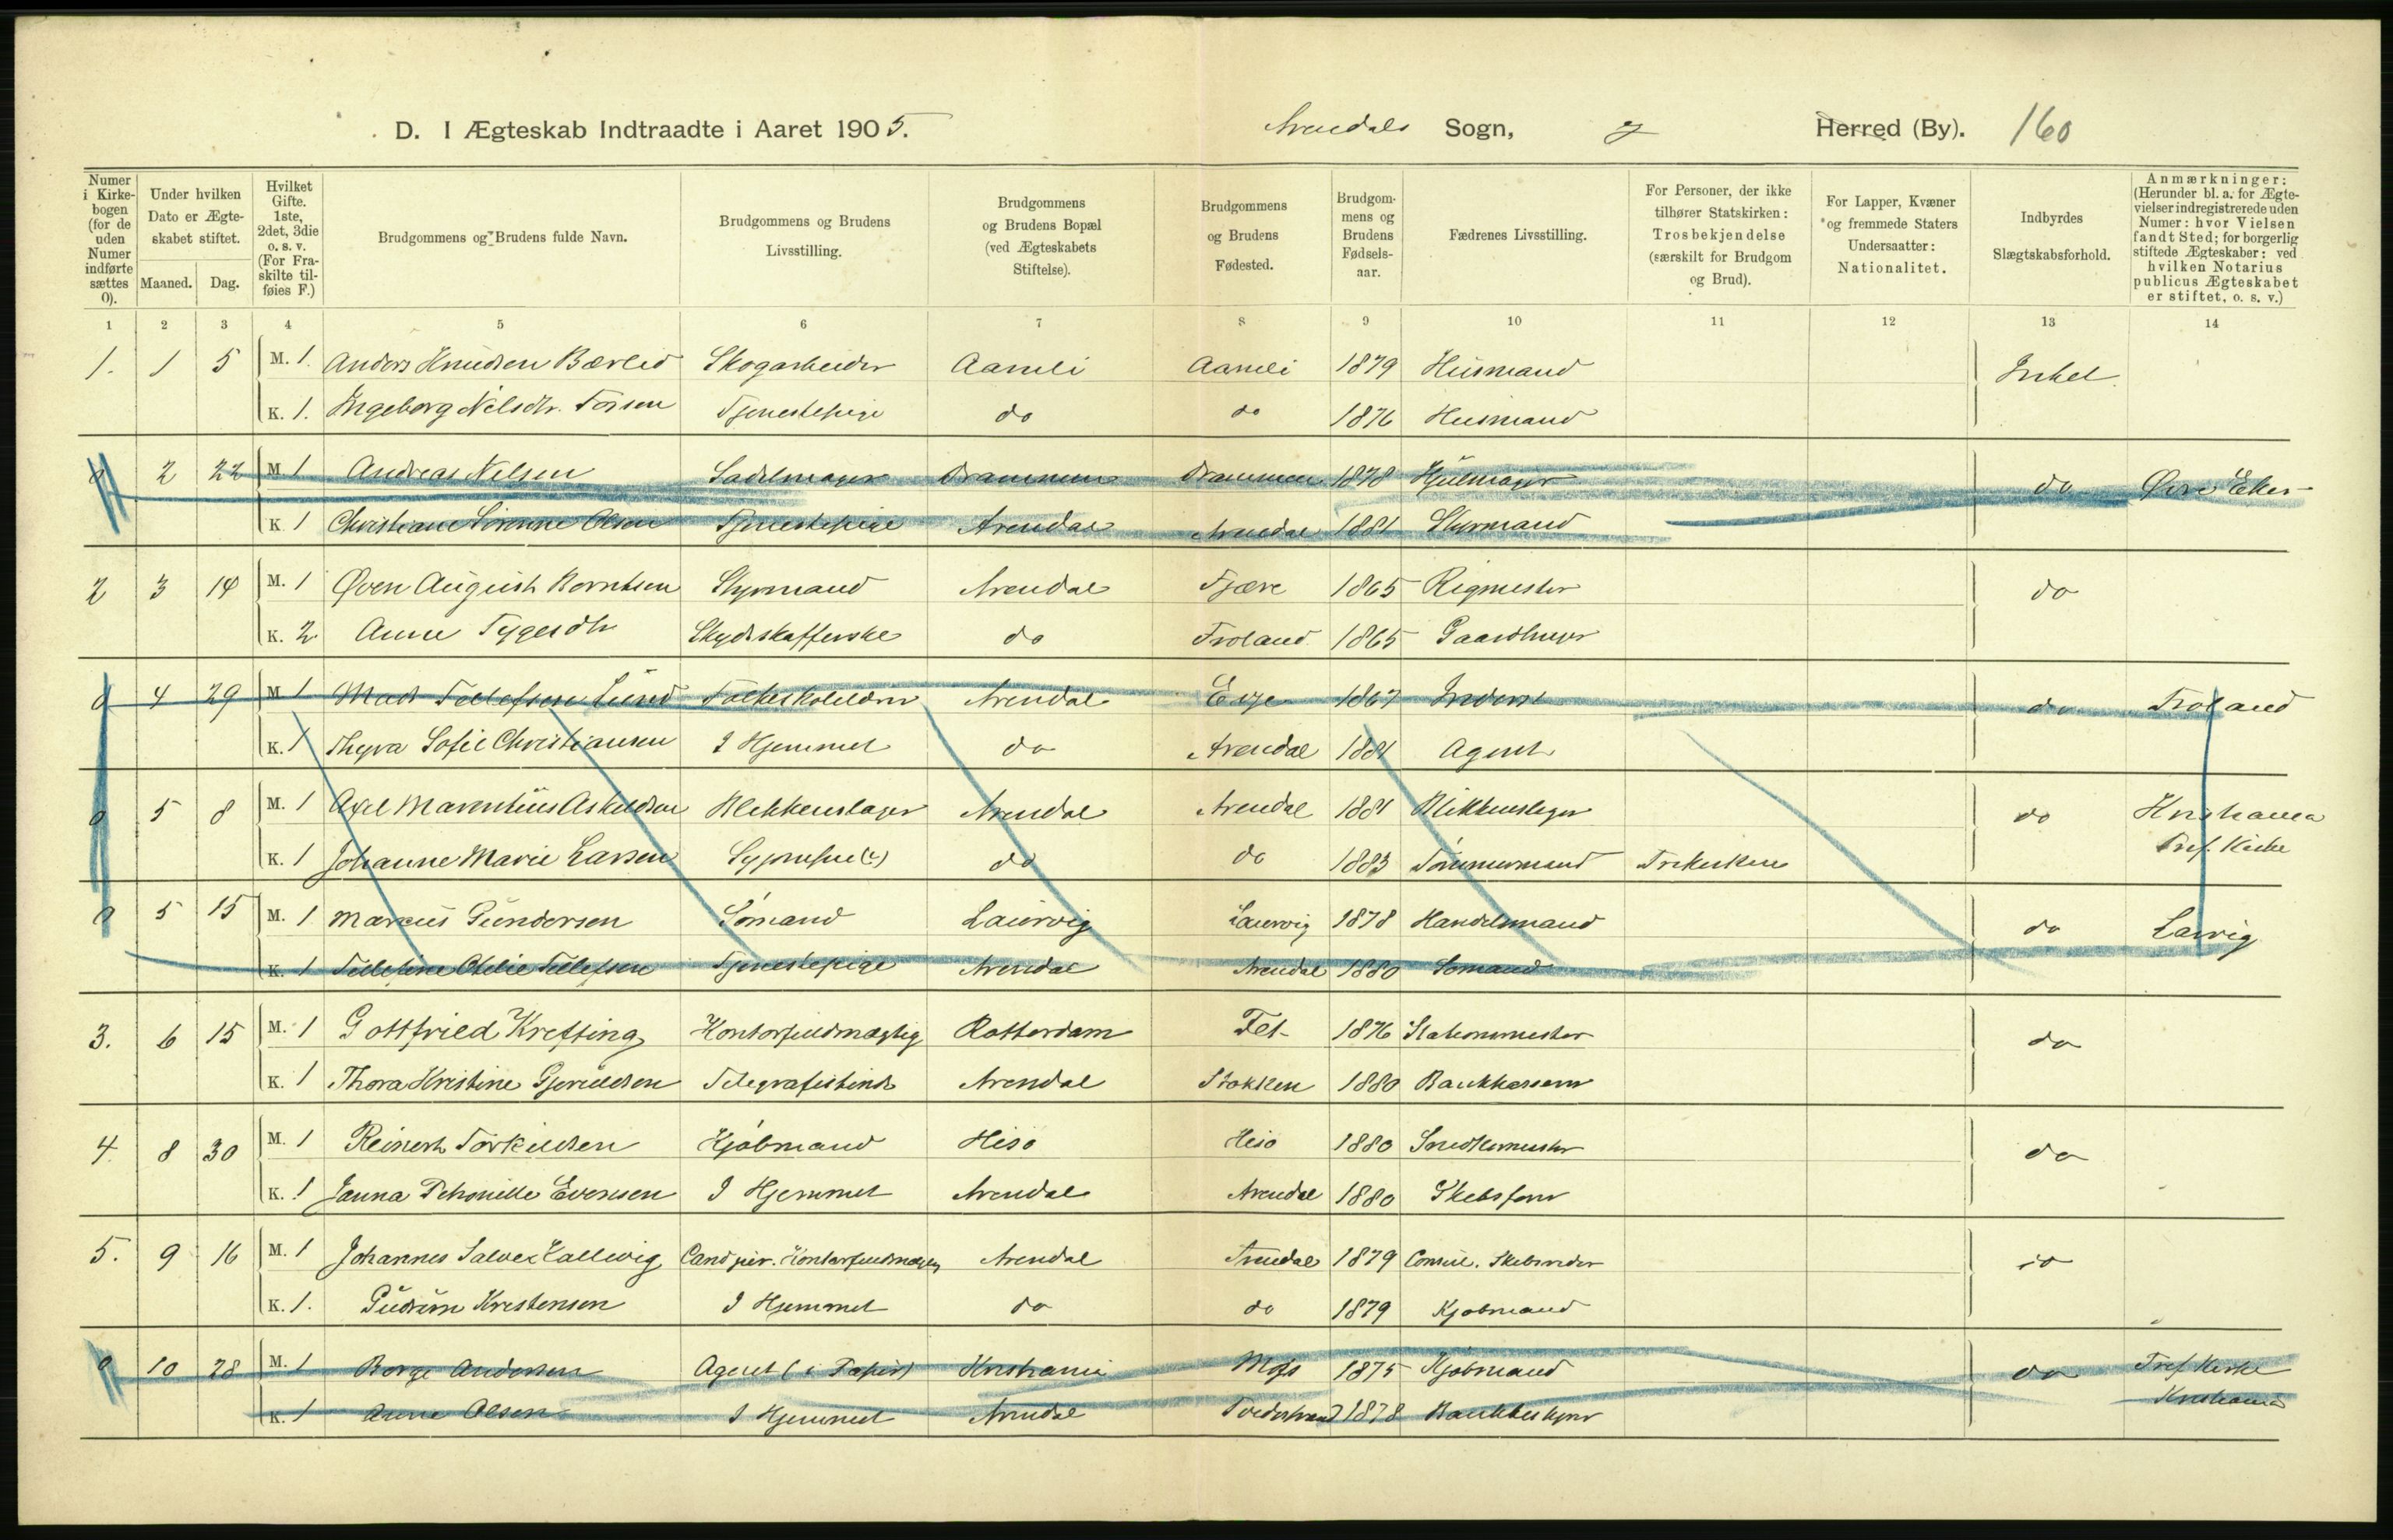 D. I Ægteskab Indtraadte i Aaret 1905.
Arendals Sogn, Herred (By). 160
Numer i Kirke-bogen (for de uden Numer indførte sættes 0).
Under hvilken Dato er Ægte-skabet stiftet.
Maaned. Dag.
Hvilket Gifte. 1ste, 2det, 3die o. s. v. (For Fra-skilte til-føies F.)
Brudgommens og Brudens fulde Navn.
Brudgommens og Brudens Livsstilling.
Brudgommens og Brudens Bopæl (ved Ægteskabets Stiftelse).
Brudgommens og Brudens Fødested.
Brudgom-mens og Brudens Fødsels-aar.
Fædrenes Livsstilling.
For Personer, der ikke tilhører Statskirken: Trosbekjendelse (særskilt for Brudgom og Brud).
For Lapper, Kvæner og fremmede Staters Undersaatter: Nationalitet.
Indbyrdes Slægtskabsforhold.
Anmærkninger: (Herunder bl. a. for Ægte-vielser indregistrerede uden Numer: hvor Vielsen fandt Sted; for borgerlig stiftede Ægteskaber: ved hvilken Notarius publicus Ægteskabet er stiftet, o. s. v.)
1 2 3 4 5 6 7 8 9 10 11 12 13 14
1. 1 5 M. 1. Anders Knudsen Bærlid Skogarbeider Aamli Aamli 1879 Husmand
K. 1. Ingeborg Nilsdtr. Tjenestepige do do 1876 Husmand
0 2 22 M 1 Andreas Nilsen Sadelmager Drammen Drammen 1878 Hjulmager do Øvre Eker
K 1 Christiane Olsen Tjenestepige Arendal Arendal 1881 Styrmand
2 3 14 M. 1 Øven August Berntsen Styrmand Arendal Fjære 1865 Rigmester do
K. 2 Anne Tygesdtr Skydskafferske do Froland 1865 Gaardbruger
0 4 29 M 1 Mads Tellefsen Lund Folkeskolelærer Arendal Eije 1867 do Froland
K. 1 Thyra Sofie Christiansen I Hjemmet do Arendal 1881 Agent
0 5 8 M. 1 Axel Marentius Askildsen Blikkenslager Arendal Arendal 1881 Blikkenslager do Kristiania
K. 1 Johanne Marie Larsen do do 1883 Tømmermand Frikirken Tref. Kirke
0 5 15 M. 1 Marcus Gundersen Sømand Laurvig Laurvig 1878 Handelsmand do Larvig
K. 1 Tellefine Otelie Tellefsen Tjenestepige Arendal Arendal 1880 Sømand
3. 6 15 M. 1 Gottfried Krefting Kontorfuldmægtig Rotterdam Fet 1876 Stationsmester do
K. 1 Thora Kristine Gjeruldsen Telegrafistinde Arendal Stokken 1880 Bankkasserer
4. 8 30 M. 1 Reinert Torkildsen Kjøbmand Hisø Hisø 1880 Snedkermester do
K. 1 Janna Petronille Evensen I Hjemmet Arendal Arendal 1880 Skibsfører
5. 9 16 M. 1 Johannes Salve Kallevig Cand jur. Kontorfuldmægtig Arendal Arendal 1879 Consul. Skibsreder do
K. 1. Gudrun Kristensen I Hjemmet do do 1879 Kjøbmand
0 10 28 M. 1 Borge Andersen Agent (i Papir) Kristiania Moss 1875 Kjøbmand do Tref. Kirke
K. 1 Anne Olsen I Hjemmet Arendal Tvedestrand 1878 Bankbestyrer Kristiania